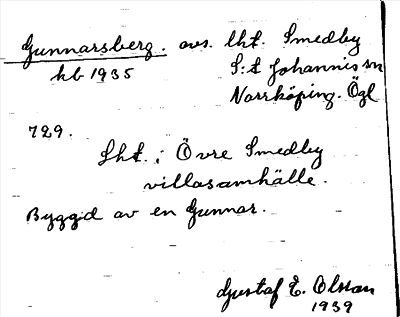 Gunnarsberg. avs. lht. Smedby
kb 1935 S:t Johannis sn
Norrköping. Ögl
729.
Lht. i Övre Smedby
villasamhälle.
Byggd av en Gunnar.
Gustaf E. Olsson
1939